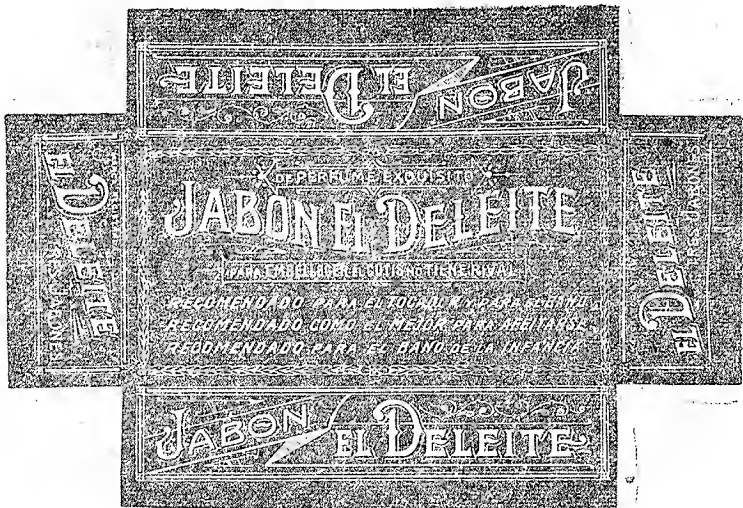 JABON EL DELEITE
EL DELEITE
TRES JABONES
DE PERFUME EXQUISITO
JABON EL DELEITE
PARA EMBELLECER EL CUTIS NO TIENE RIVAL
RECOMENDADO PARA EL TOCADOR Y PARA EL BAÑO
RECOMENDADO COMO EL MEJOR PARA AFEITARSE
RECOMENDADO PARA EL BAÑO DE LA INFANCIA
EL DELEITE
TRES JABONES
JABON EL DELEITE